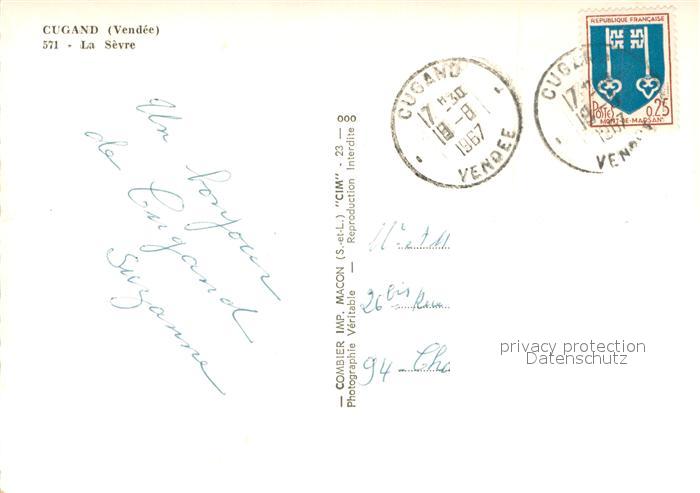 CUGAND (Vendée)
571 - La Sèvre
Un bonjour
de Cugand
Suzanne
— COMBIER IMP. MACON (S.-et-L.) "CIM" - 23 — 000
Photographie Véritable — Reproduction Interdite
CUGAND
17 H 30
19 - 8
1967
VENDEE
CUGAND
17
19
1967
VENDEE
REPUBLIQUE FRANÇAISE
Postes 0,25
MONT-DE-MARSAN
26 bis Rue
94 - Cha
privacy protection
Datenschutz